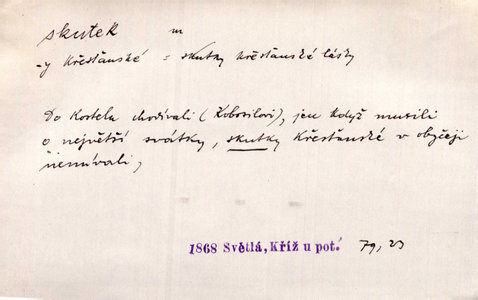 skutek m
-y křesťanské = skutky křesťanské lásky
Do kostela chodívali (Kobosilovi), jen když musili
o největší svátky, skutky křesťanské v obyčeji
neměvali,
1868 Světlá, Kříž u pot. 79, 23